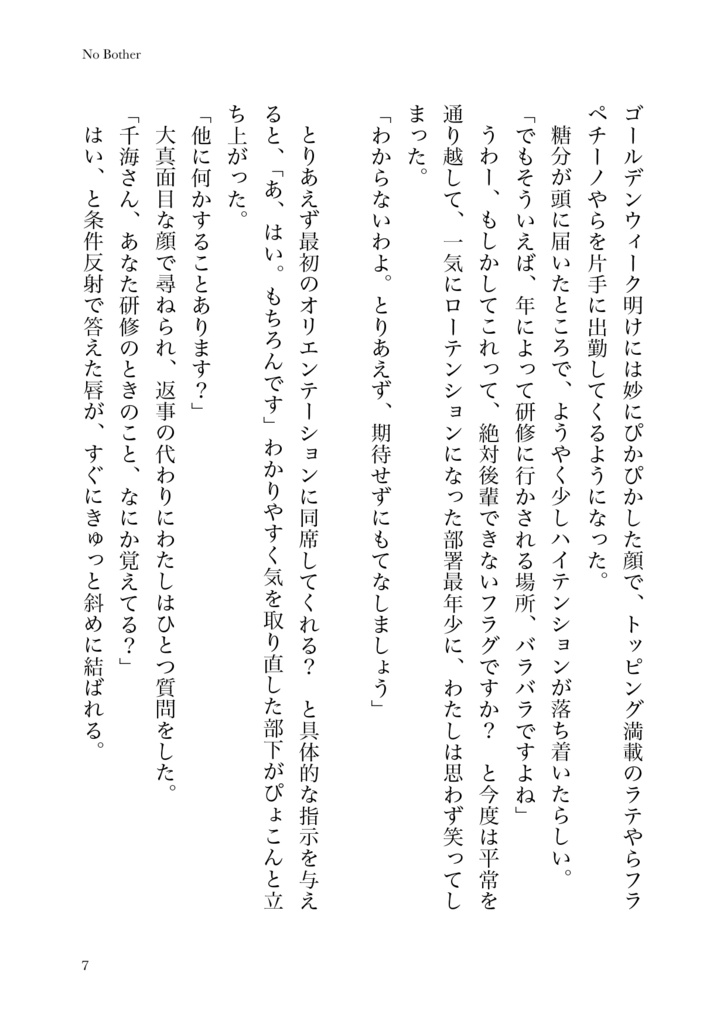 No Bother
ゴールデンウィーク明けには妙にぴかぴかした顔で、トッピング満載のラテやらフラ
ペチーノやらを片手に出勤してくるようになった。
糖分が頭に届いたところで、ようやく少しハイテンションが落ち着いたらしい。
「でもそういえば、年によって研修に行かされる場所、バラバラですよね」
うわー、もしかしてこれって、絶対後輩できないフラグですか？　と今度は平常を
通り越して、一気にローテンションになった部署最年少に、わたしは思わず笑ってし
まった。
「わからないわよ。とりあえず、期待せずにもてなしましょう」
とりあえず最初のオリエンテーションに同席してくれる？　と具体的な指示を与え
ると、「あ、はい。もちろんです」わかりやすく気を取り直した部下がぴょこんと立
ち上がった。
「他に何かすることあります？」
大真面目な顔で尋ねられ、返事の代わりにわたしはひとつ質問をした。
「千海さん、あなた研修のときのこと、なにか覚えてる？」
はい、と条件反射で答えた唇が、すぐにきゅっと斜めに結ばれる。
7